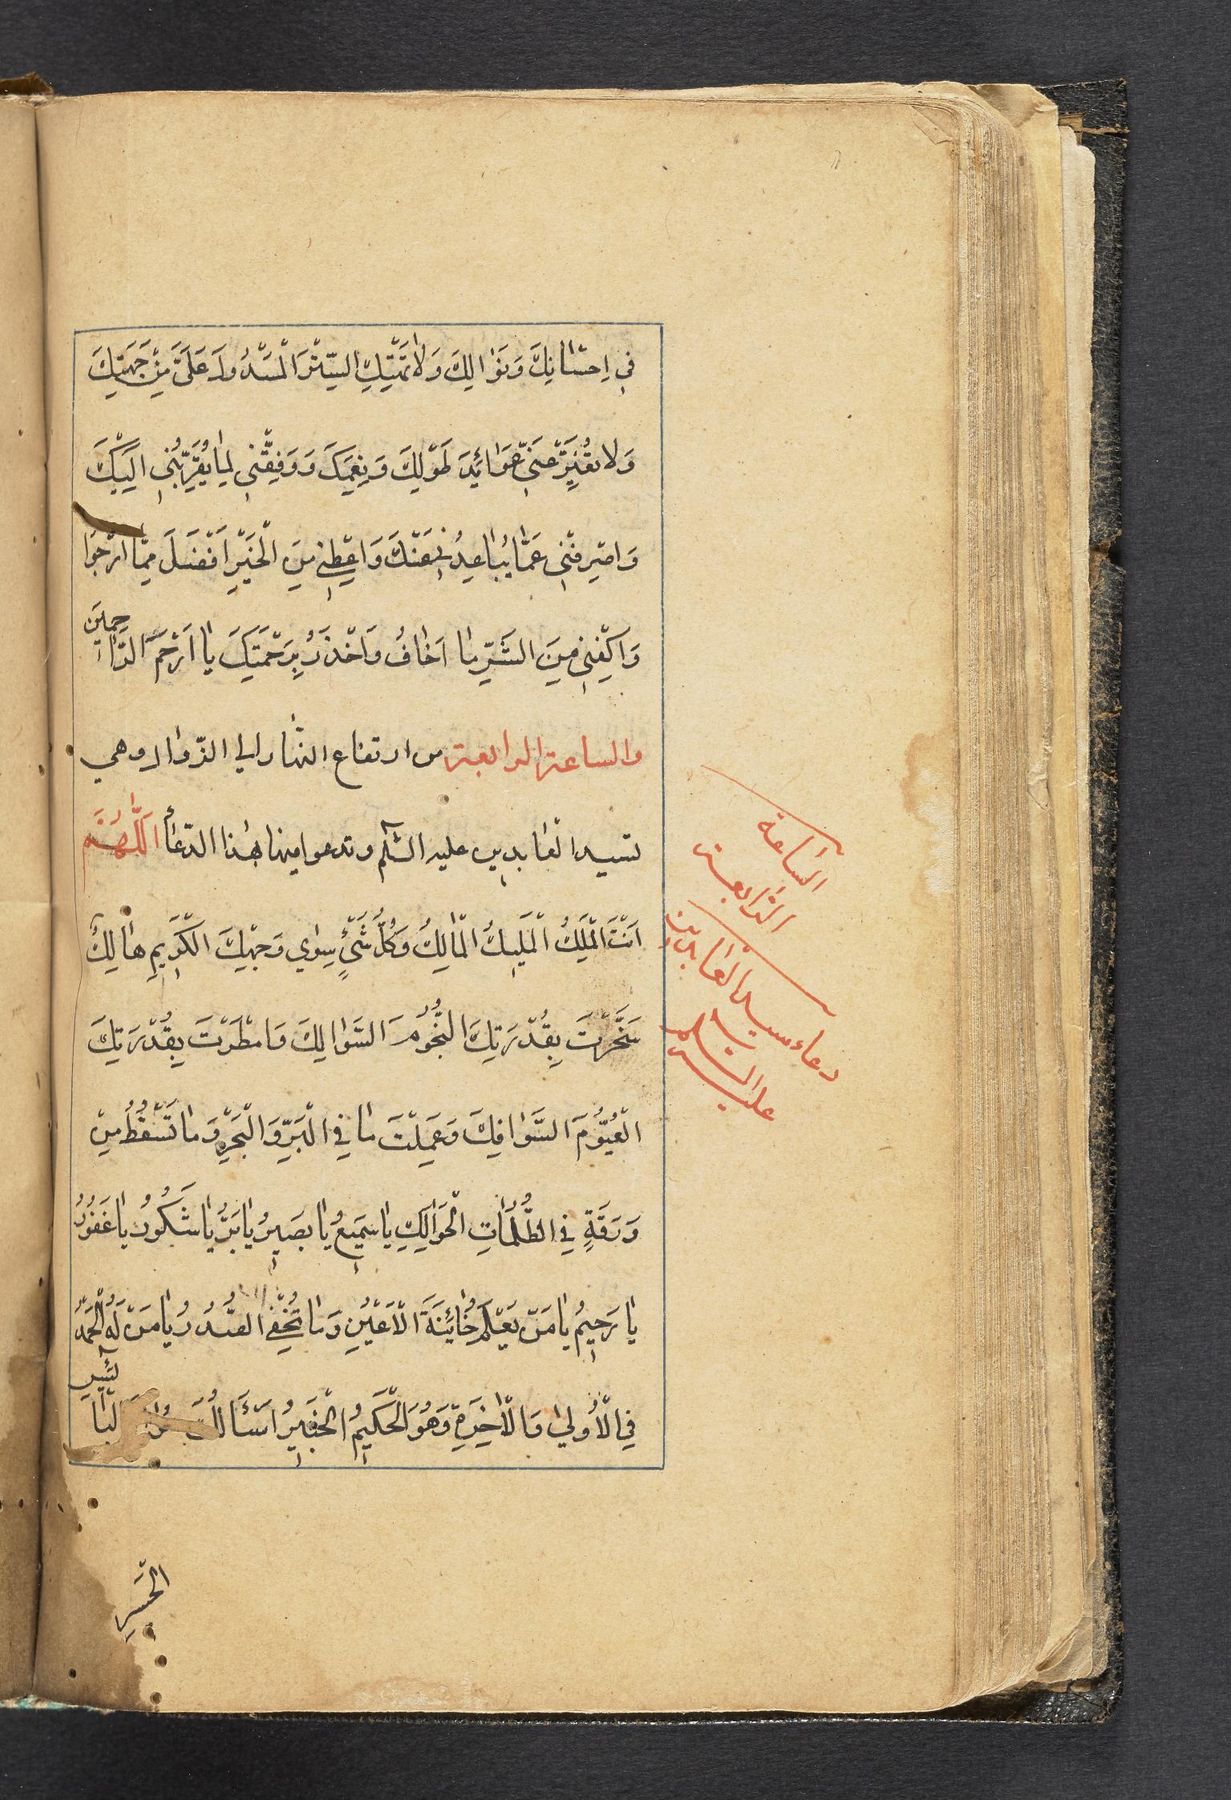 في اِحْسٰانِكَ وَنَوٰالِكَ وَلاٰ تَهْتِكِ السِّتْرَ الْمَسْدُولَ عَلَيَّ مِنْ جَهَتِكَ
وَلا تقُيِّرَ عَنّي عَوٰائِدَ طَوْلِكَ وَنِعَمِكَ وَوَفِقَّني لِمٰا يُقَرِّبُني اِلَيْكَ
وَاصْرِفْني عَمّٰا يُبٰاعِدُني عَنْكَ وَاَعْطِني مِنَ الْخَيْرِ اَفْضَلَ مِمّٰا اَرْجُوا
وَاكْفِني مِنَ الشَّرِّ مٰا اَخٰافُ وَاَحْذَرُ بِرَحْمَتِكَ يٰا اَرْحَمَ الرّٰاحمين
والساعة الرابعة من ارتفاع النهار الي الزوال وهي
لسيد العٰابدين عليه السّلم وتدعوا فيها بهٰذا الدّعٰاء اَللّٰهُمَّ
اَنْتَ الْمَلِكُ الْمَليكُ الْمٰالِكُ وَكُلُّ شَيْءٍ سِوٰي وَجْهِكَ الْكَرَيمِ هٰالِكٌ
سَخَّرْتَ بِقُدْرَتِكَ النُّجُومَ السَّوٰالِكَ وَامْطَرْتَ بِقُدْرَتِكَ
الْغُيُومَ السَّوٰافِكَ وَعَلِمْتَ مٰا فِي الْبَرِّ وَالْبَحْرِ وَمٰا تَسْقُطُ مِنْ
وَرَقَةٍ فِي الظُّلُمٰاتِ الْحَوٰالِكِ يٰا سَميعُ يٰا بَصيرُ يٰا بَرُّ يٰا شَكُورُ يٰا غَفُورُ
يٰا رَحيمُ يٰا مَنْ يَعْلَمُ خٰائِنَةَ الْاَعْيُنِ وَمٰا تُخْفِي الصُّدُورُ يٰا مَنْ لَهُ الْحَمْدُ
فِي الْاُولىٰ وَالْاٰخِرَةِ وَهُوَ الْحَكيمُ الْخَبيرُ اَسْئَالُكَ
الحَسَرِ
السّاعة
الرّابعة
دعاء سيد العابدين
عليه السّلم